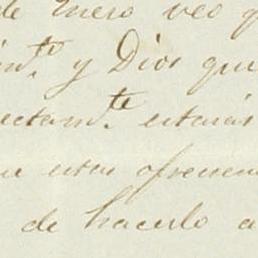 de Enero veo q
im.te y Dios que
ectam.te estarás
ue estas ofrecien
de hacerlo a